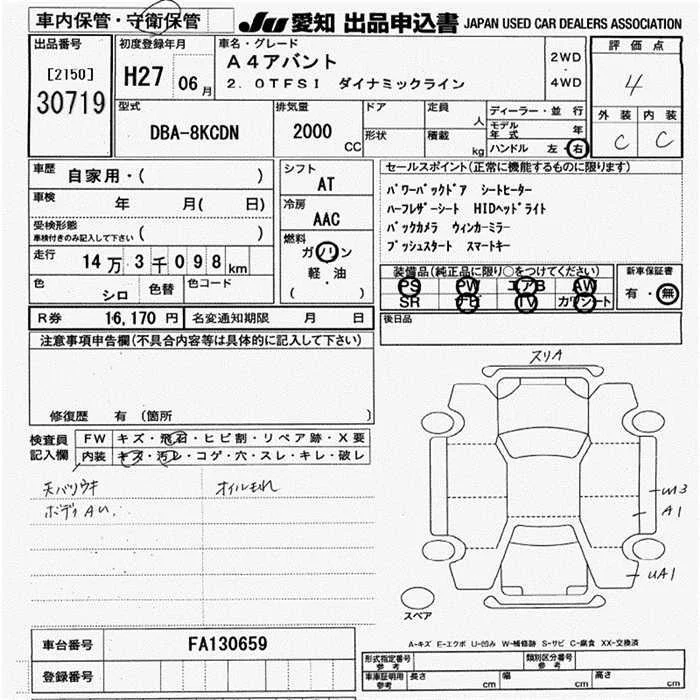 車内保管・守衛保管
JU 愛知 出品申込書 JAPAN USED CAR DEALERS ASSOCIATION
出品番号
[2150]
30719
初度登録年月
H27 06月
車名・グレード
A4アバント
2.0TFSI ダイナミックライン
2WD
・
4WD
評価点
4
外装 内装
C C
型式
DBA-8KCDN
排気量
2000 CC
ドア
形状
定員 人
積載 kg
ディーラー・並行
モデル年式 年
ハンドル 左・右
車歴 自家用・( )
車検 年 月( 日)
受検形態
車検付きのみ記入して下さい ( )
走行 14万3千098km
色 シロ 色替 色コード
シフト
AT
冷房
AAC
燃料
ガソリン
軽・油
( )
セールスポイント(正常に機能するものに限ります)
パワーバックドア シートヒーター
ハーフレザーシート HIDヘッドライト
バックカメラ ウィンカーミラー
プッシュスタート スマートキー
装備品(純正品に限り○をつけてください)
PS PW エアB AW
SR ナビ TV カワシート
新車保証書
有・無
R券 16,170円 名変通知期限 月 日
後日品
注意事項申告欄(不具合内容等は具体的に記入して下さい)
修復歴 有(箇所 )
検査員記入欄
FW キズ・飛石・ヒビ割・リペア跡・X要
内装 キズ・汚レ・コゲ・穴・スレ・キレ・破レ
天バリウキ オイルもれ
ボディAU.
スリA
A1
UA1
スペア
A-キズ E-エクボ U-凹み W-補修跡 S-サビ C-腐食 XX-交換済
車台番号 FA130659
登録番号
形式指定番号参考 類別区分番号参考
車庫証明用参考 長さ cm 幅 cm 高さ cm